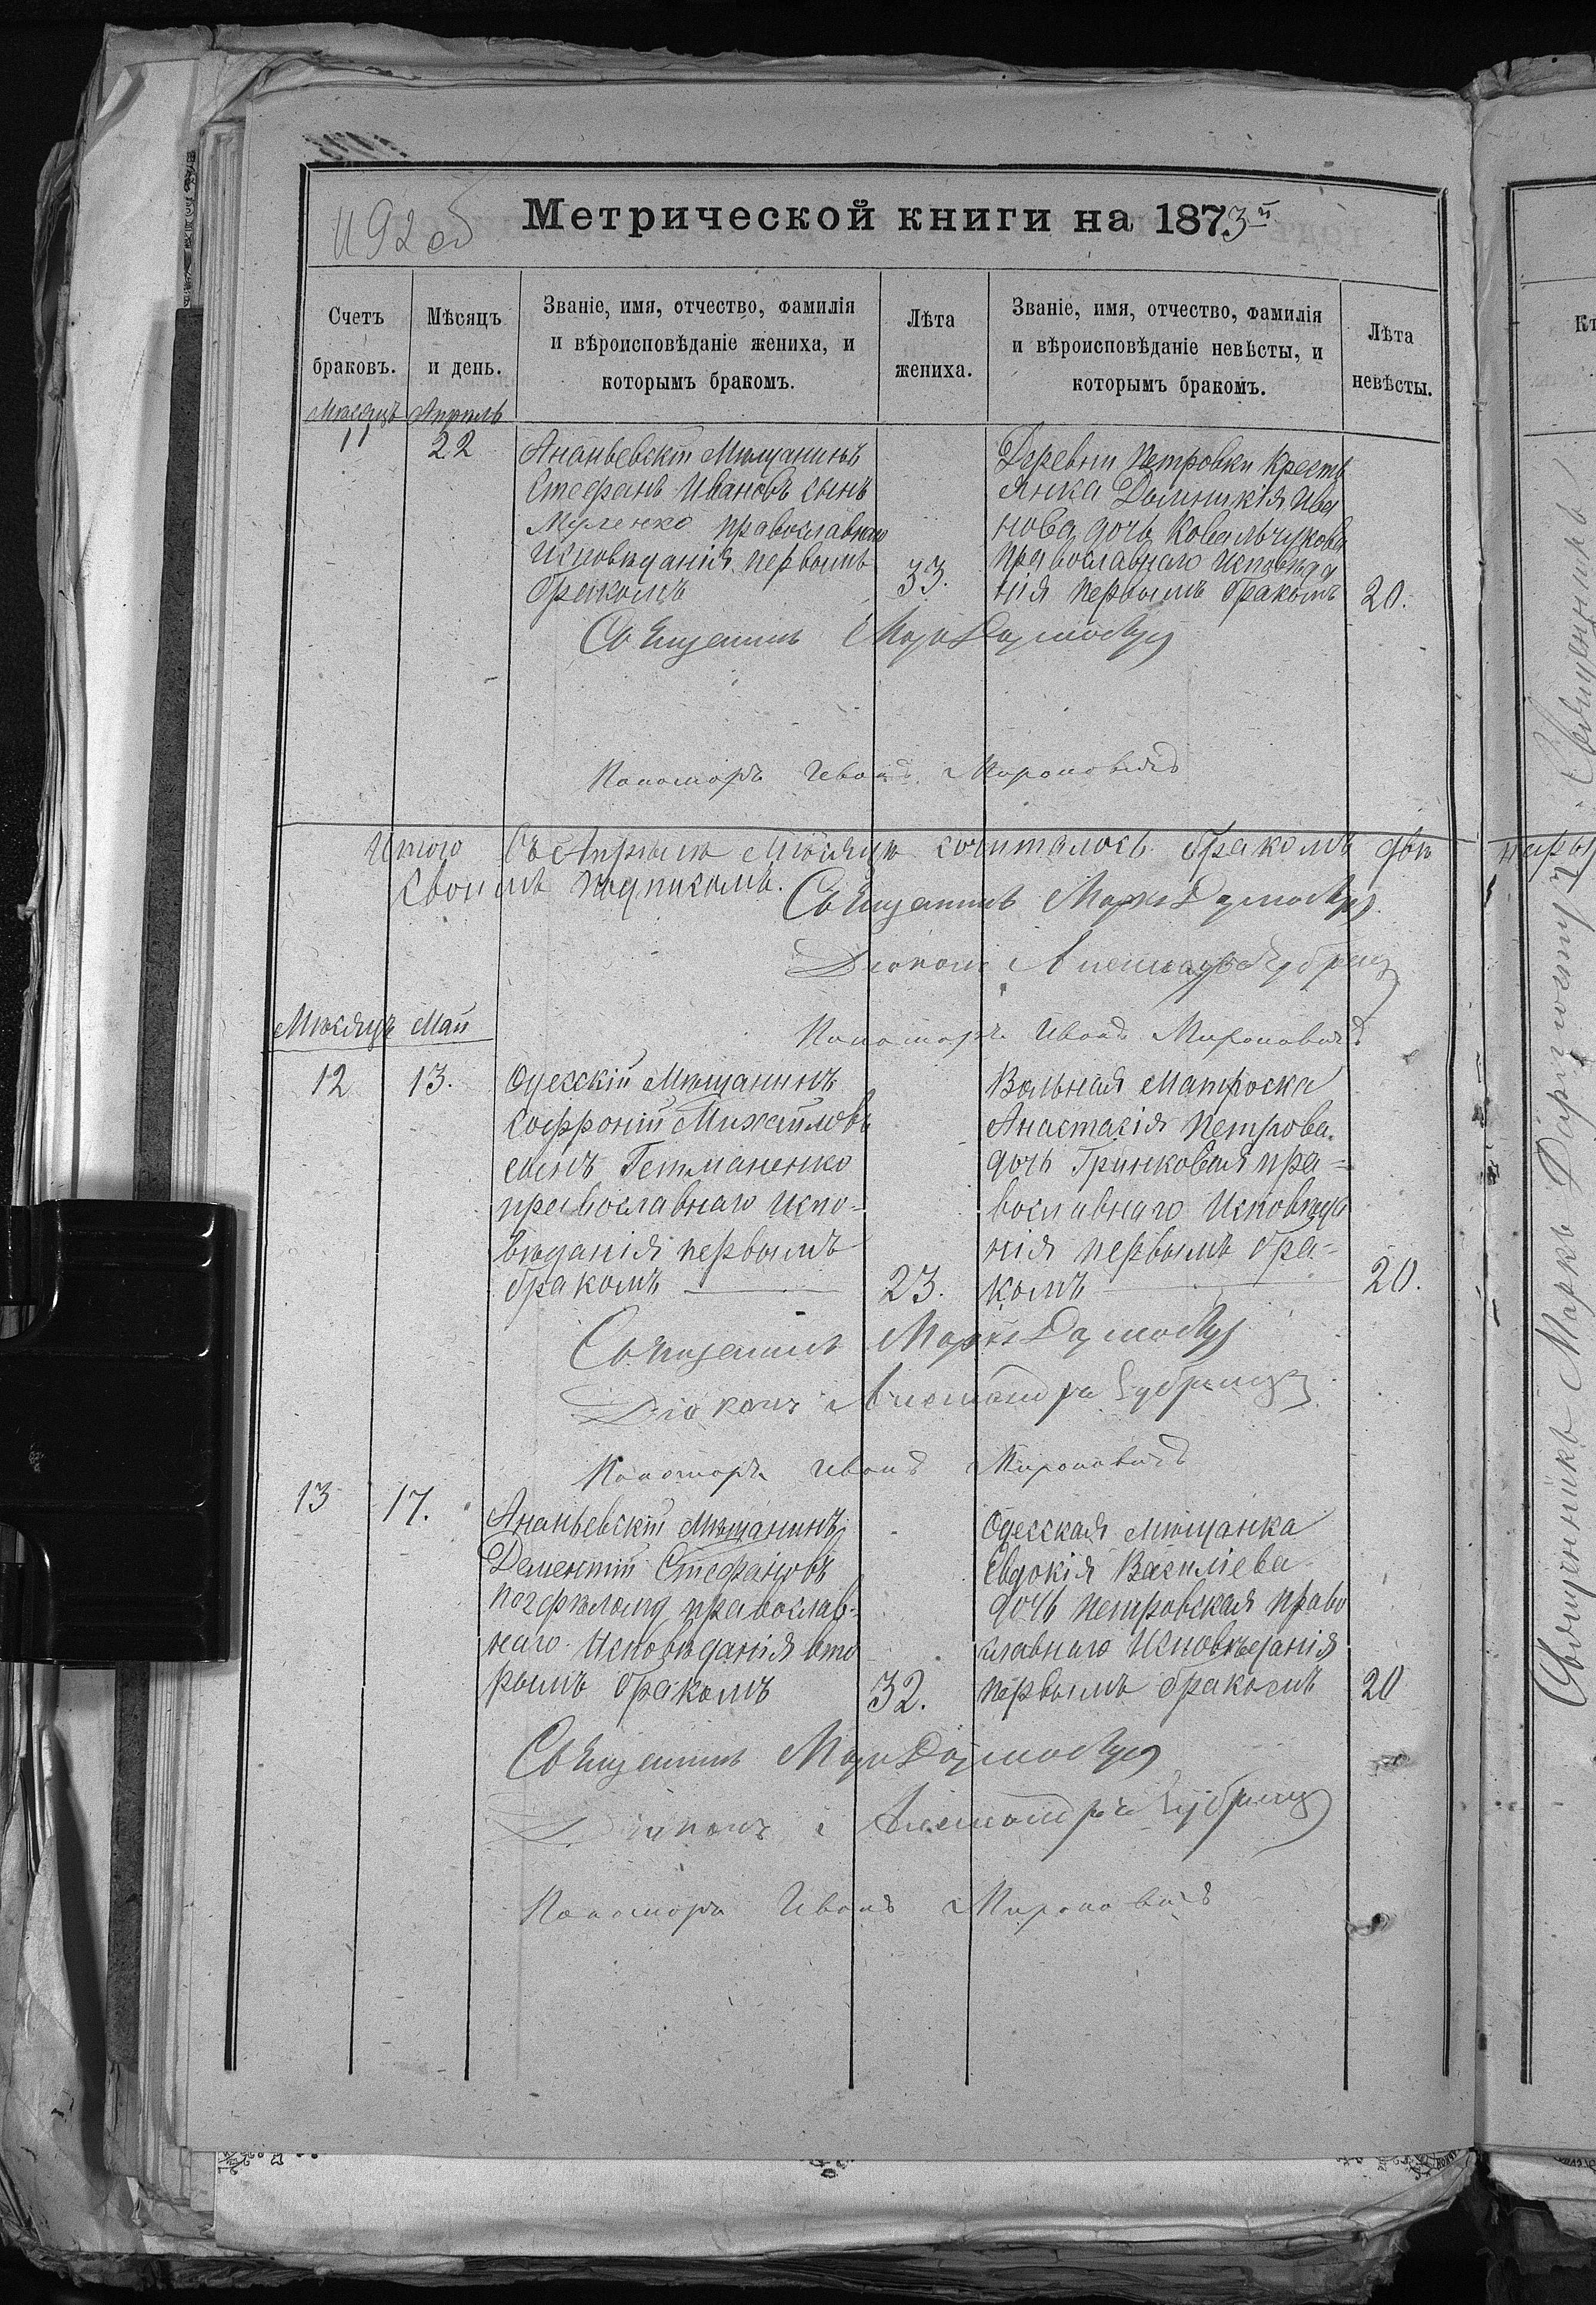 1192 об
Метрической книги на 1873й
Счетъ браковъ.
Мѣсяцъ и день.
Званіе, имя, отчество, фамилія
и вѣроисповѣданіе жениха, и
которымъ бракомъ.
Лѣта жениха.
Званіе, имя, отчество, фамилія
и вѣроисповѣданіе невѣсты, и
которымъ бракомъ.
Лѣта невѣсты.
Мѣсяцъ Апрель
11
22
Ананьевскій Мѣщанинъ
Стефанъ Ивановъ сынъ
православнаго
Исповѣданія первымъ
бракомъ
33.
Деревни Петровки Кресть
янка Домникія Ива
нова дочь Ковальчукова
православнаго Исповѣда
нія первымъ бракомъ
20.
Священникъ Маркъ
Пономарь Иванъ Мироновичъ
Итого Въ Апрелѣ Мѣсяцѣ сочиталось бракомъ двѣ
своимъ подписомъ.
Священникъ Маркъ
Діаконъ Александръ
Пономарь Иванъ Мироновичъ
Мѣсяцъ Май
12
13.
Одесскій Мѣщанинъ
Софроній Михайловъ
сынъ Гетманенко
православнаго Испо-
вѣданія первымъ
бракомъ
23.
Вольная Матроска
Анастасія Петрова
дочь Гринковая пра-
вославнаго Исповѣда
нія первымъ бра-
комъ
20.
Священникъ Маркъ
Діаконъ Александръ
Пономарь Иванъ Мироновичъ
13
17.
Ананьевскій Мѣщанинъ
Дементій Стефановъ
православ-
наго Исповѣданія вто
рымъ бракомъ
32.
Одесская мѣщанка
Евдокія Василіева
дочь Петровская право
славнаго Исповѣданія
первымъ бракомъ
20
Священникъ Маркъ
Діаконъ Александръ
Пономарь Иванъ Мироновичъ
пары
Священникъ Маркъ